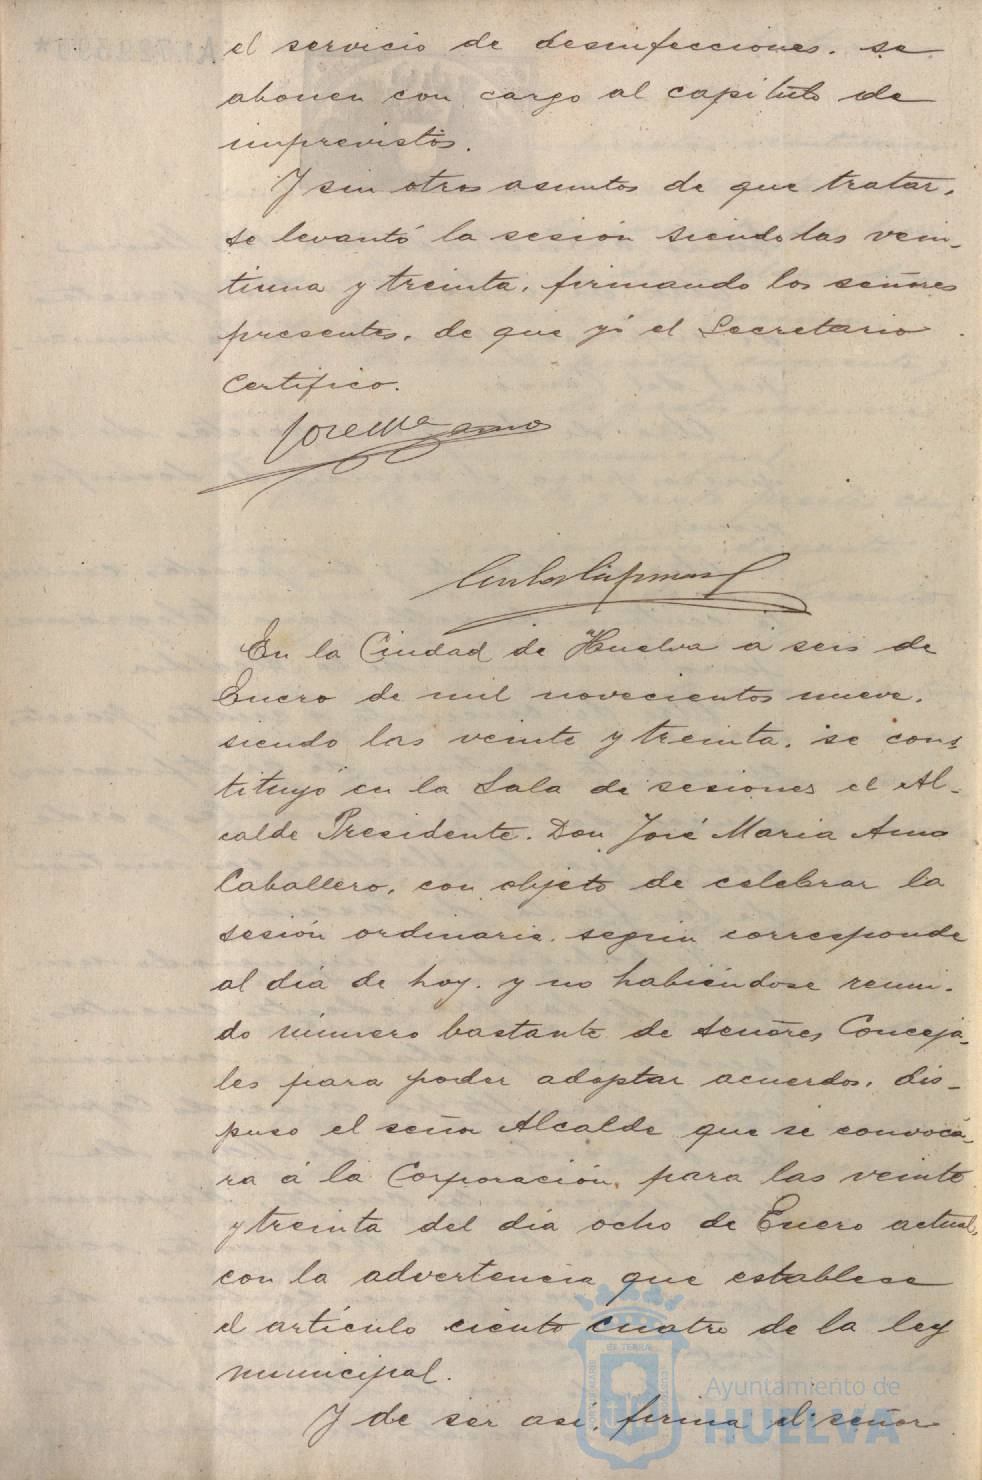 el servicio de desinfecciones. se
abonen con cargo al capítulo de
imprevistos.
Y sin otros asuntos de que tratar,
se levantó la sesión siendo las vein-
tiuna y treinta, firmando los señores
presentes, de que yó el Secretario
certifico.
José Mª Amo
En la Ciudad de Huelva á seis de
Enero de mil novecientos nueve,
siendo las veinte y treinta, se cons-
tituyó en la Sala de sesiones el Al-
calde Presidente, Don José Maria Amo
Caballero, con objeto de celebrar la
sesión ordinaria, según corresponde
al día de hoy, y no habiéndose reuni-
do número bastante de señores Conceja-
les para poder adoptar acuerdos, dis-
puso el señor Alcalde que se convocá-
ra á la Corporación, para las veinte
y treinta del día ocho de Enero actual,
con la advertencia que establece
el artículo ciento cuatro de la ley
municipal.
Y de ser así, firma el señor
Ayuntamiento de
HUELVA